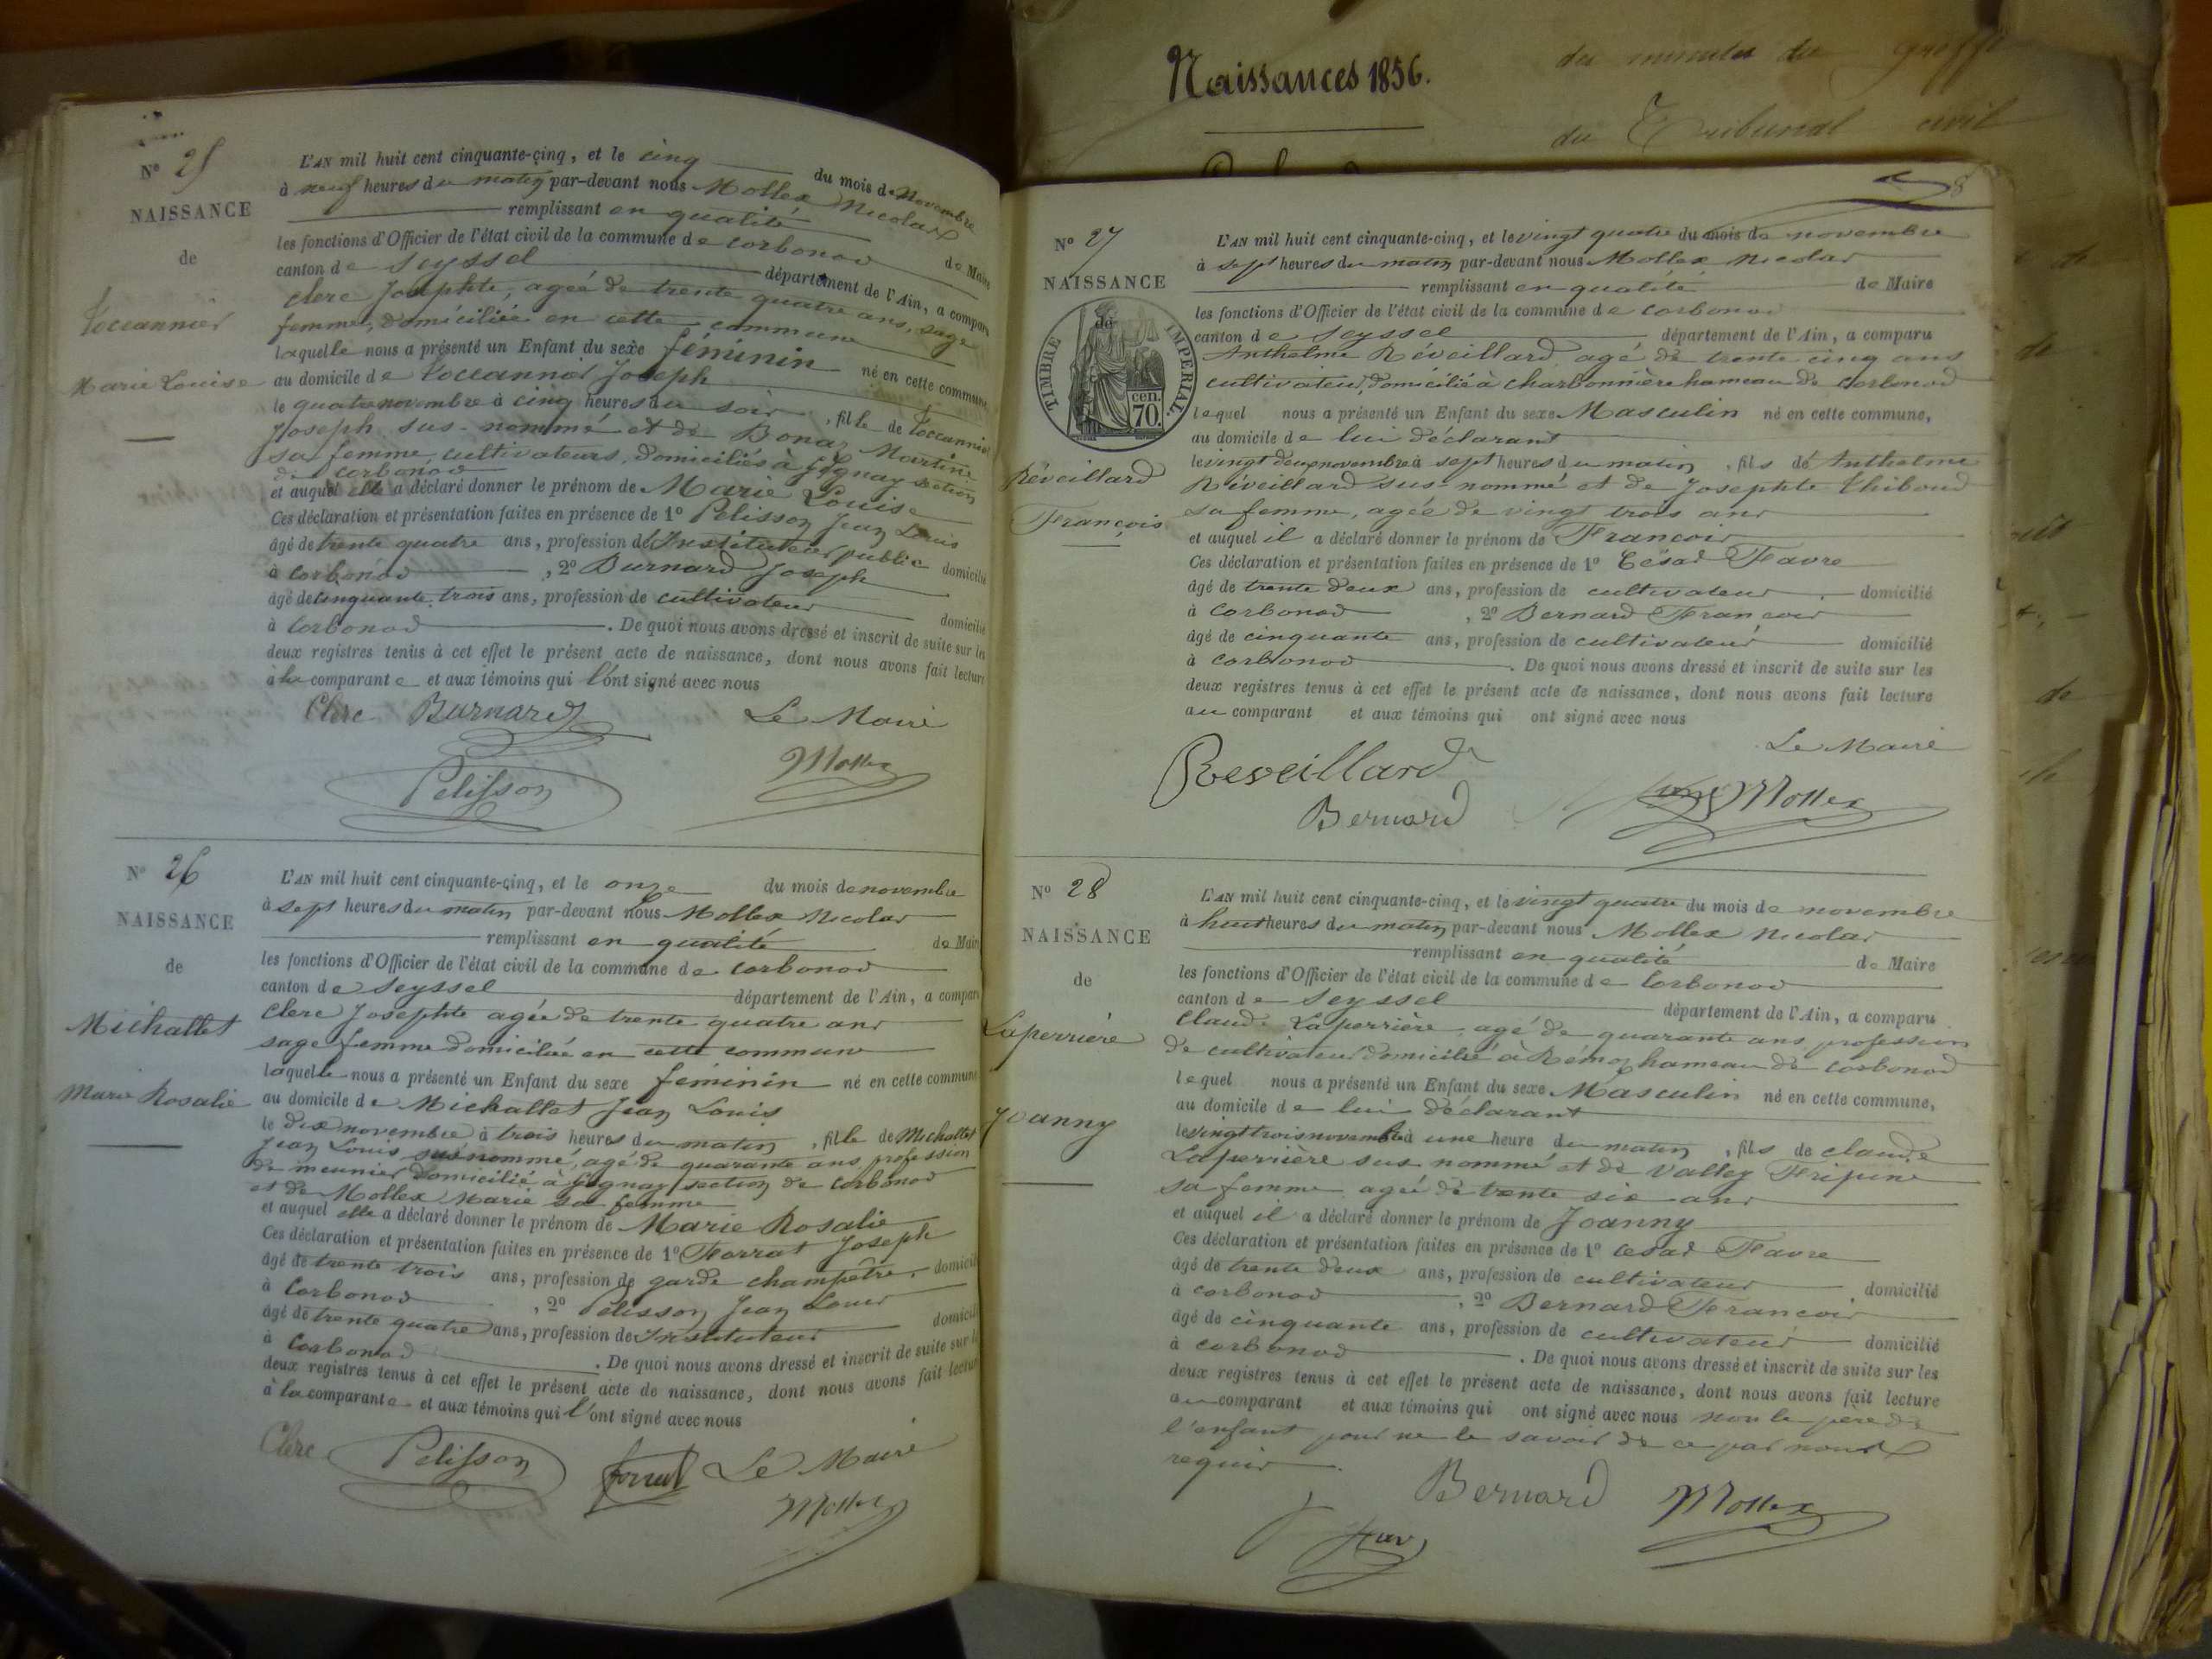 N° 25
NAISSANCE
de
Toccannier
Marie Louise
L'AN mil huit cent cinquante-cinq, et le cinq du mois de Novembre
à neuf heures du matin par-devant nous Mollex Nicolas
remplissant en qualité de Maire
les fonctions d'Officier de l'état civil de la commune de Corbonod
canton de Seyssel département de l'Ain, a comparu
Clerc Josephte, agée de trente quatre ans, sage
femme, domiciliée en cette commune
laquelle nous a présenté un Enfant du sexe féminin né en cette commune,
au domicile de Toccannier Joseph
le quatre novembre à cinq heures du soir, fille de Toccannier
Joseph sus-nommé et de Bonaz Martine
sa femme, cultivateurs, domiciliés à Gignay section
de Corbonod
et auquel elle a déclaré donner le prénom de Marie Louise
Ces déclaration et présentation faites en présence de 1° Pelisson Jean Louis
âgé de trente quatre ans, profession de Instituteur public domicilié
à Corbonod, 2° Burnard Joseph
âgé de cinquante trois ans, profession de cultivateur domicilié
à Corbonod. De quoi nous avons dressé et inscrit de suite sur les
deux registres tenus à cet effet le présent acte de naissance, dont nous avons fait lecture
à la comparante et aux témoins qui l'ont signé avec nous
Clerc Burnard Le Maire
Pelisson Mollex
N° 26
NAISSANCE
de
Michallet
Marie Rosalie
L'AN mil huit cent cinquante-cinq, et le onze du mois de novembre
à sept heures du matin par-devant nous Mollex Nicolas
remplissant en qualité de Maire
les fonctions d'Officier de l'état civil de la commune de Corbonod
canton de Seyssel département de l'Ain, a comparu
Clerc Josephte agée de trente quatre ans
sage femme domiciliée en cette commune
laquelle nous a présenté un Enfant du sexe féminin né en cette commune
au domicile de Michallet Jean Louis
le dix novembre à trois heures du matin, fille de Michallet
Jean Louis susnommé, agé de quarante ans profession
de meunier domicilié à Gignay section de Corbonod
et de Mollex Marie sa femme
et auquel elle a déclaré donner le prénom de Marie Rosalie
Ces déclaration et présentation faites en présence de 1° Forrat Joseph
âgé de trente trois ans, profession de garde champêtre, domicilié
à Corbonod, 2° Pelisson Jean Louis
âgé de trente quatre ans, profession de Instituteur domicilié
à Corbonod. De quoi nous avons dressé et inscrit de suite sur les
deux registres tenus à cet effet le présent acte de naissance, dont nous avons fait lecture
à la comparante et aux témoins qui l'ont signé avec nous
Clerc Pelisson forrat Le Maire
Mollex
Naissances 1856.
des minutes du greffe
du Tribunal civil
8
N° 27
NAISSANCE
de
TIMBRE IMPERIAL
cen. 70.
Réveillard
François
L'AN mil huit cent cinquante-cinq, et le vingt quatre du mois de novembre
à sept heures du matin par-devant nous Mollex Nicolas
remplissant en qualité de Maire
les fonctions d'Officier de l'état civil de la commune de Corbonod
canton de Seyssel département de l'Ain, a comparu
Anthelme Réveillard agé de trente cinq ans
cultivateur, domicilié à Charbonnière hameau de Corbonod
lequel nous a présenté un Enfant du sexe Masculin né en cette commune,
au domicile de lui déclarant
le vingt deux novembre à sept heures du matin, fils de Anthelme
Réveillard sus-nommé et de Josephte Thiboud
sa femme, agée de vingt trois ans
et auquel il a déclaré donner le prénom de François
Ces déclaration et présentation faites en présence de 1° César Favre
âgé de trente deux ans, profession de cultivateur domicilié
à Corbonod, 2° Bernard François
âgé de cinquante ans, profession de cultivateur domicilié
à Corbonod. De quoi nous avons dressé et inscrit de suite sur les
deux registres tenus à cet effet le présent acte de naissance, dont nous avons fait lecture
au comparant et aux témoins qui ont signé avec nous
Le Maire
Reveillard
Bernard Mollex
N° 28
NAISSANCE
de
Laperrière
Joanny
L'AN mil huit cent cinquante-cinq, et le vingt quatre du mois de novembre
à huit heures du matin par-devant nous Mollex Nicolas
remplissant en qualité de Maire
les fonctions d'Officier de l'état civil de la commune de Corbonod
canton de Seyssel département de l'Ain, a comparu
Claude Laperrière, agé de quarante ans, profession
de cultivateur domicilié à Rémoz hameau de Corbonod
lequel nous a présenté un Enfant du sexe Masculin né en cette commune,
au domicile de lui déclarant
le vingt trois novembre à une heure du matin, fils de Claude
Laperrière sus nommé et de Valley Fripine
sa femme agée de trente six ans
et auquel il a déclaré donner le prénom de Joanny
Ces déclaration et présentation faites en présence de 1° César Favre
âgé de trente deux ans, profession de cultivateur domicilié
à Corbonod, 2° Bernard François
âgé de cinquante ans, profession de cultivateur domicilié
à Corbonod. De quoi nous avons dressé et inscrit de suite sur les
deux registres tenus à cet effet le présent acte de naissance, dont nous avons fait lecture
au comparant et aux témoins qui ont signé avec nous non le père de
l'enfant pour ne le savoir de ce par nous
requis.
Bernard Mollex